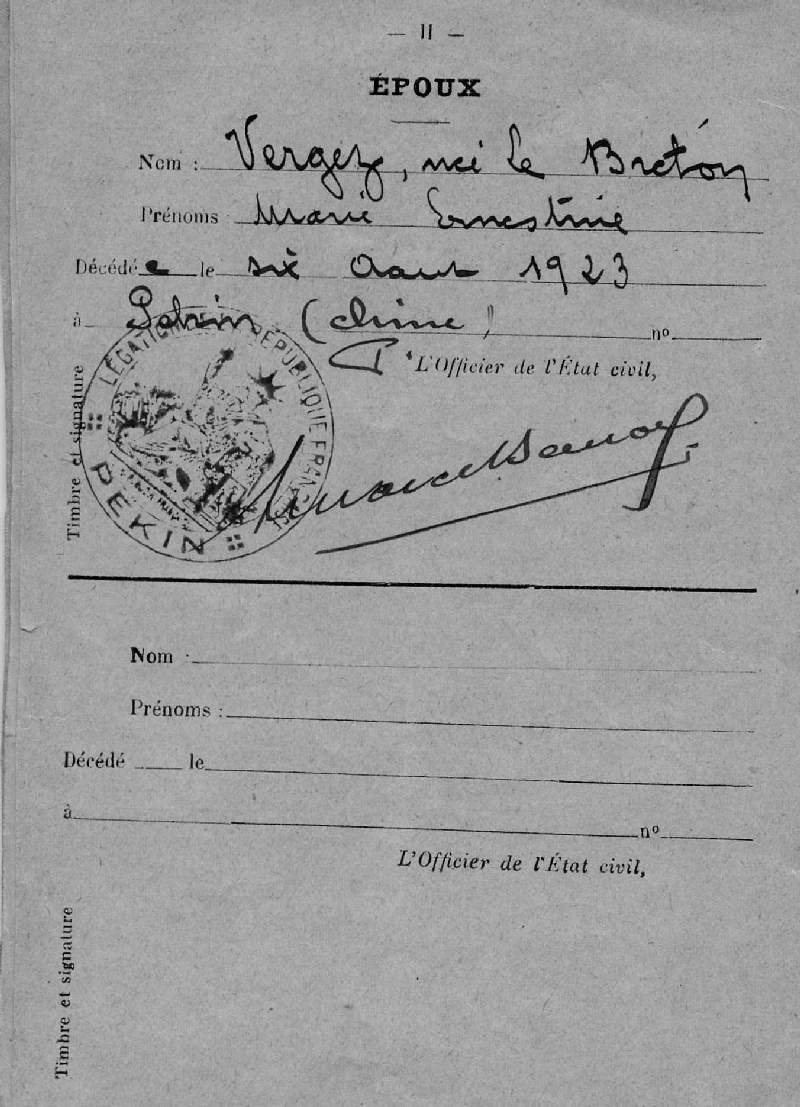 — II —
ÉPOUX
Nom : Vergez, née Le Breton
Prénoms : Marie Ernestine
Décédée le six Aout 1923
à Pekin (Chine) nº
P. L'Officier de l'État civil,
Timbre et signature
LÉGATION DE LA RÉPUBLIQUE FRANÇAISE
PEKIN
Nom :
Prénoms :
Décédé le
à nº
L'Officier de l'État civil,
Timbre et signature